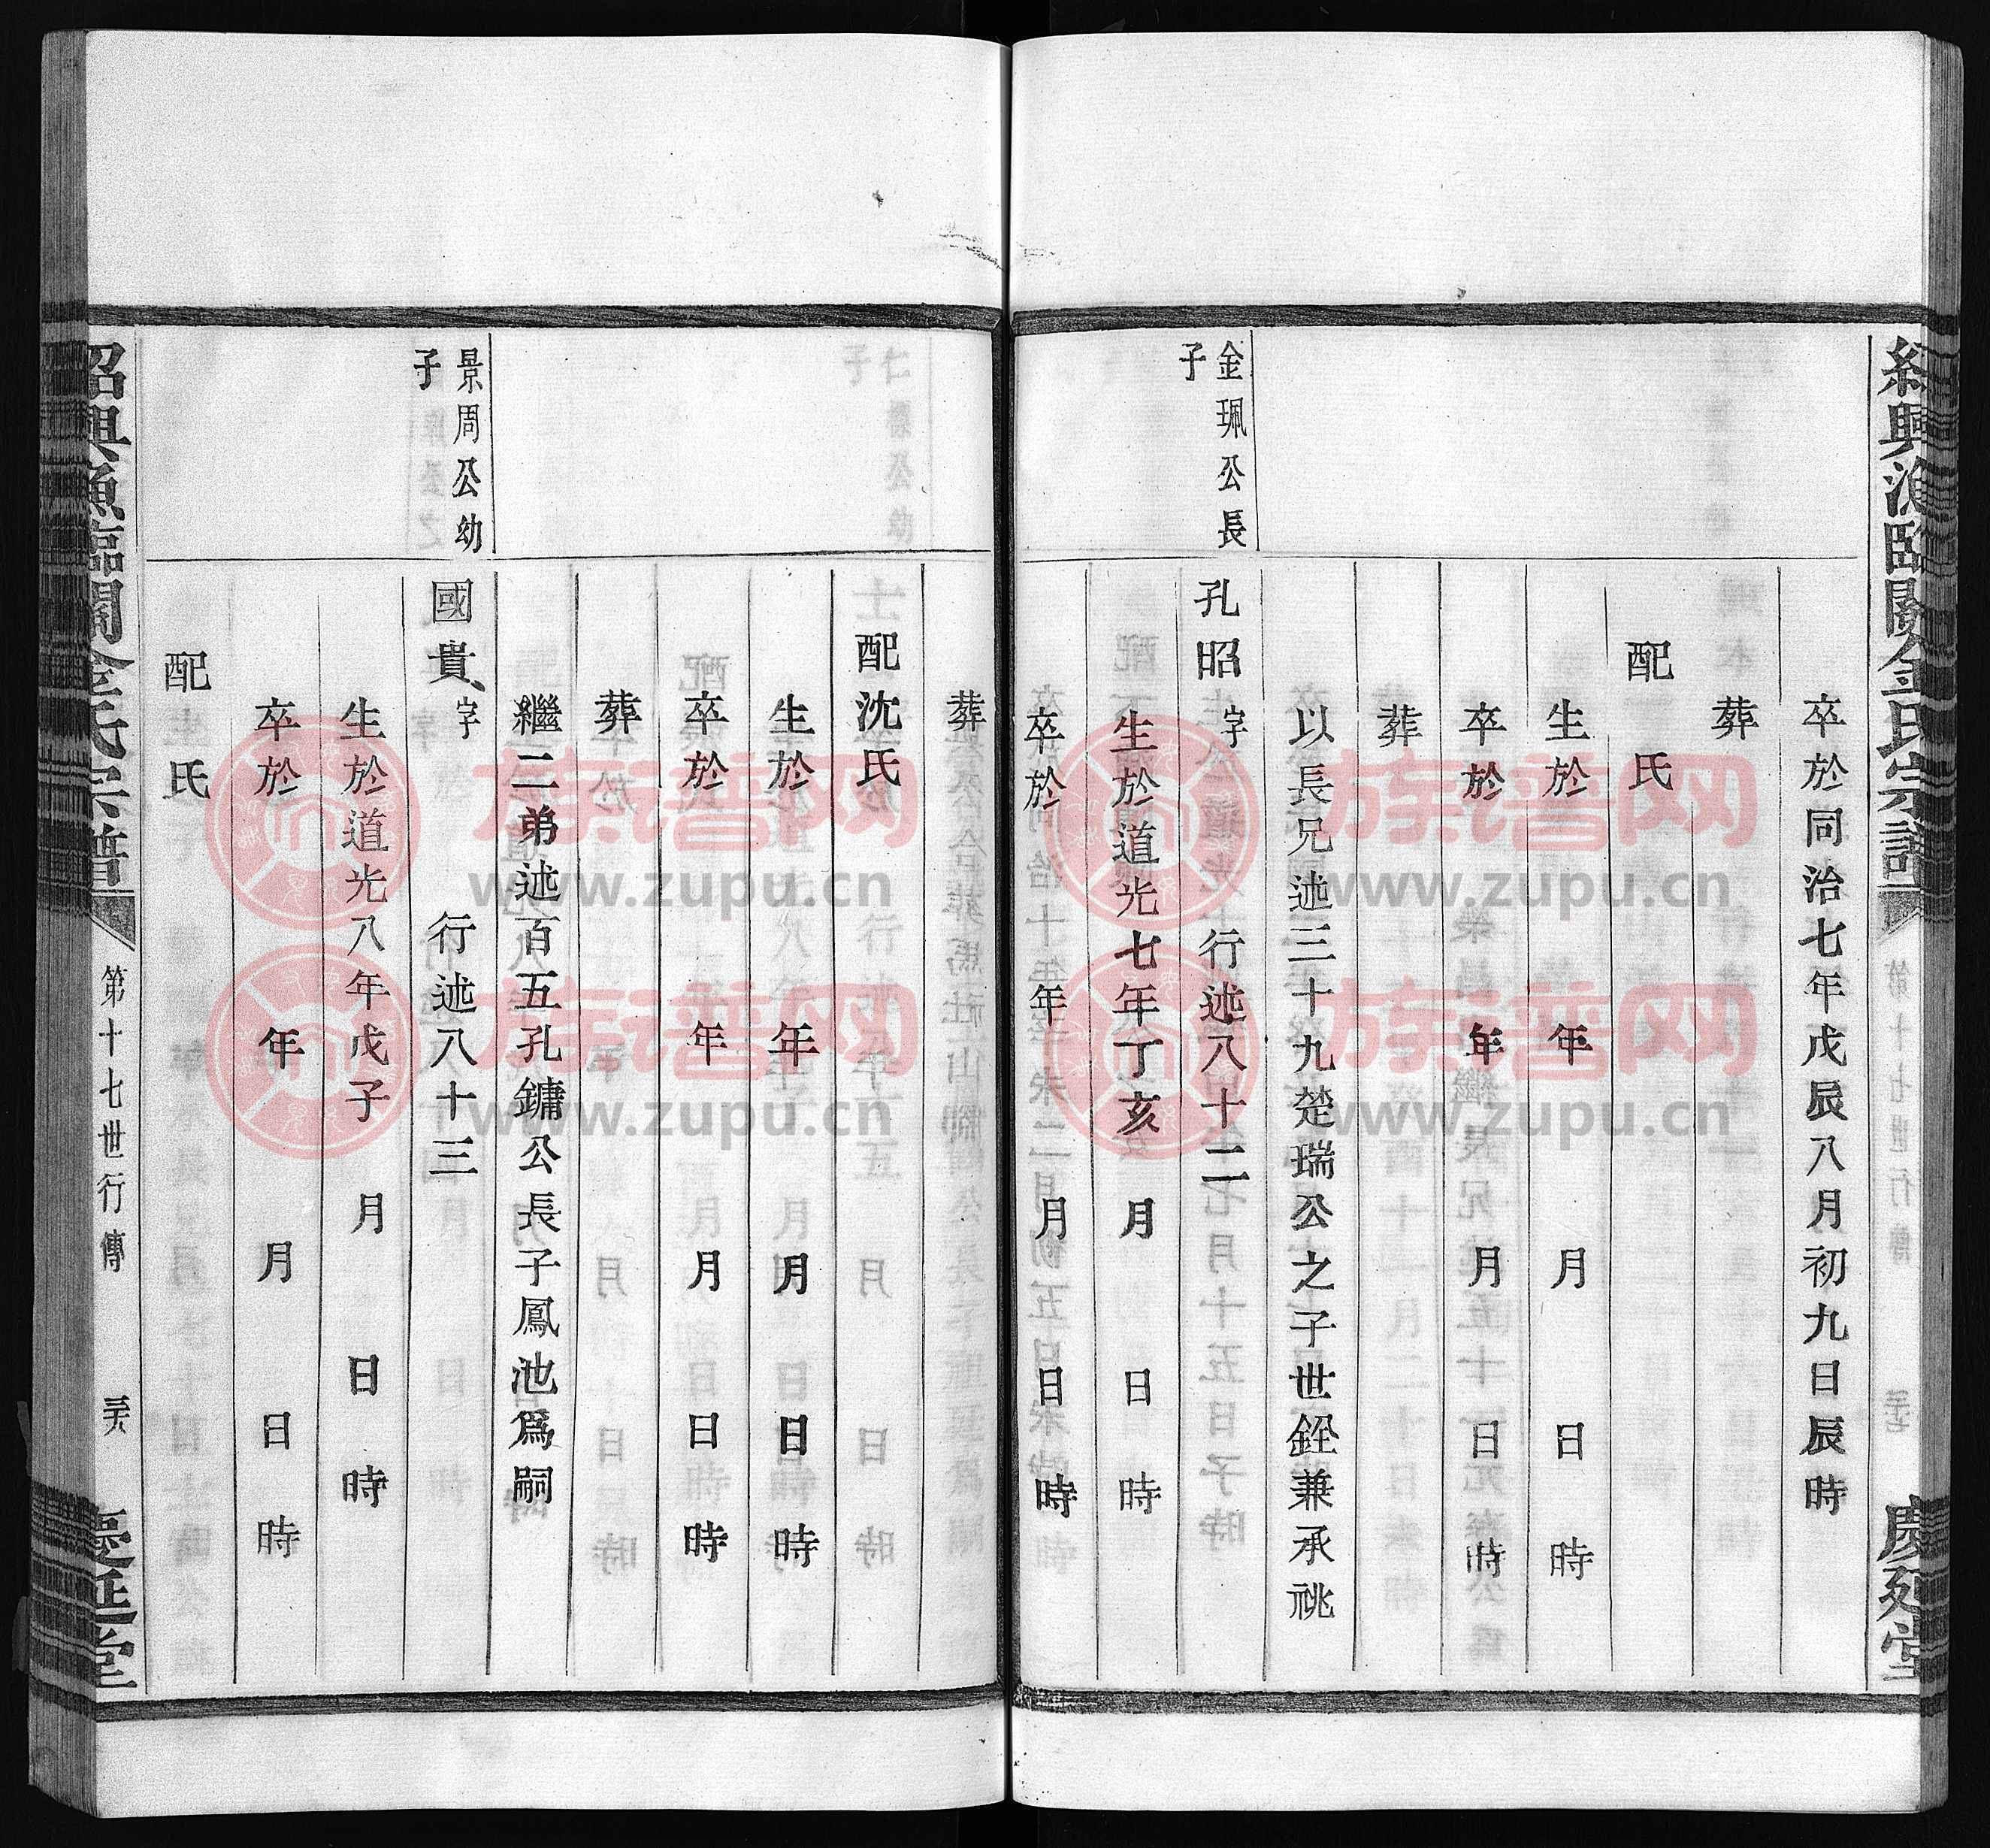 紹興漁臨關金氏宗譜
第十七世行傳
慶延堂
卒於同治七年戊辰八月初九日辰時
葬
配 氏
生於 年 月 日 時
卒於 年 月 日 時
葬
以長兄述三十九楚瑞公之子世銓兼承祧
金珮公長
子
孔昭字 行述八十二
生於道光七年丁亥 月 日 時
卒於 年 月 日 時
葬
配沈氏
生於 年 月 日 時
卒於 年 月 日 時
葬
繼二弟述百五孔鏞公長子鳳池爲嗣
景周公幼
子
國貴字 行述八十三
生於道光八年戊子 月 日 時
卒於 年 月 日 時
配 氏
紹興漁臨關金氏宗譜
第十七世行傳
慶延堂
族譜网
www.zupu.cn
族譜网
www.zupu.cn
族譜网
www.zupu.cn
族譜网
www.zupu.cn